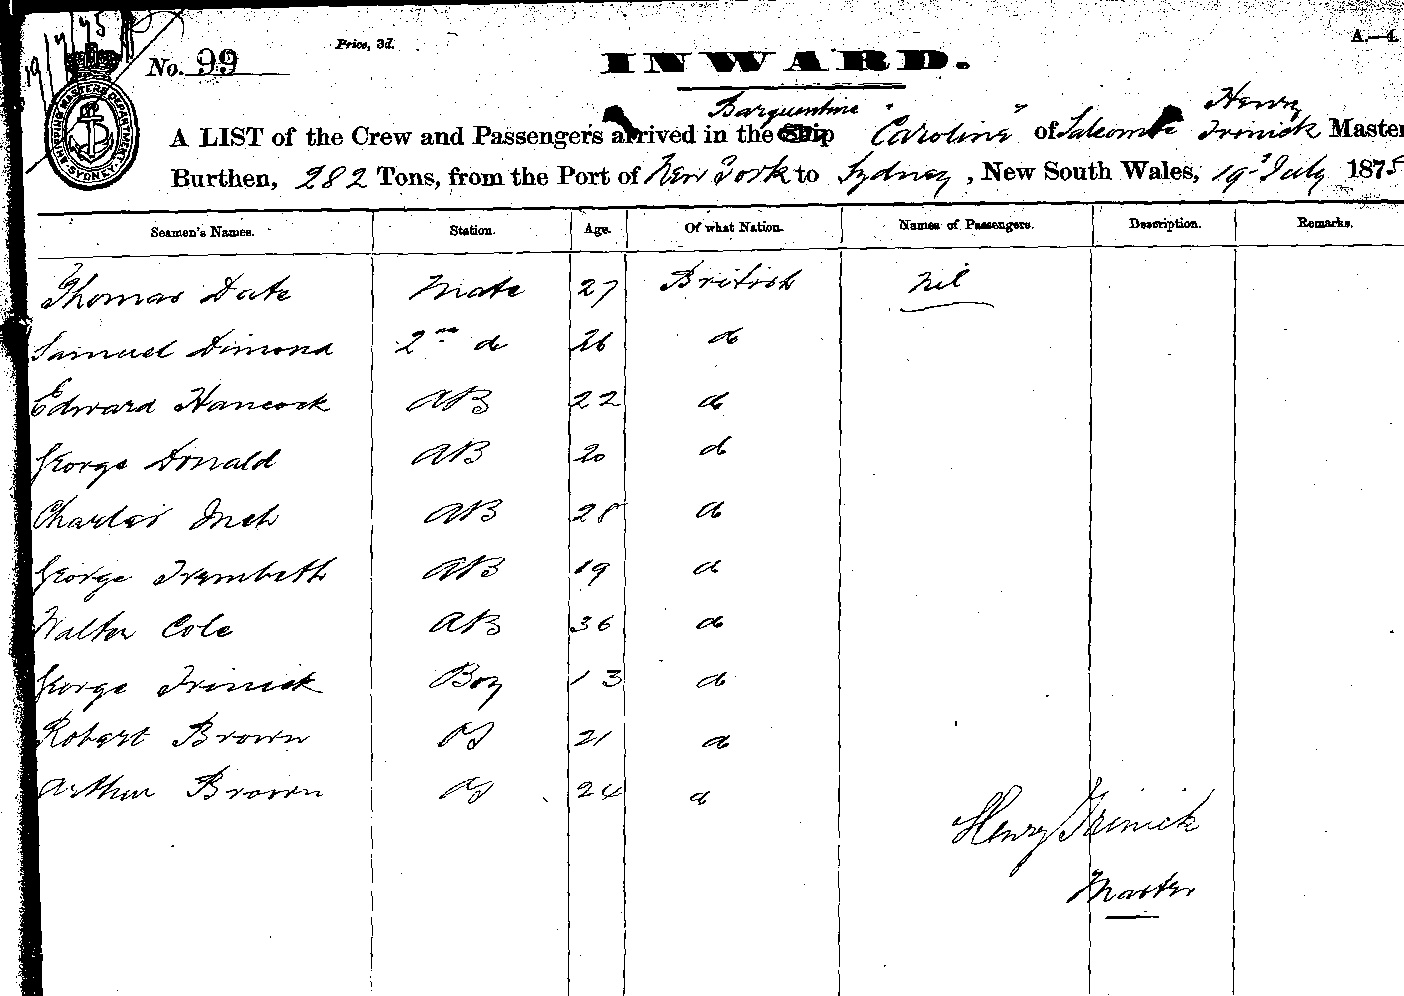 19/7/75
No. 99
Price, 3d.
A.—4.
INWARD.
SHIPPING MASTERS DEPARTMENT SYDNEY
Barquentine Henry
A LIST of the Crew and Passengers arrived in the Ship "Caroline" of Salcombe Trinick Master
Burthen, 282 Tons, from the Port of New York to Sydney, New South Wales, 19th July 1875
Seamen's Names. Station. Age. Of what Nation. Names of Passengers. Description. Remarks.
Thomas Date Mate 27 British Nil
Samuel Dimond 2nd do 26 do
Edward Hancock AB 22 do
George Donald AB 20 do
Charles Inch AB 28 do
George Trembeth AB 19 do
Walter Cole AB 36 do
George Trinick Boy 13 do
Robert Brown OS 21 do
Arthur Brown OS 24 do
Henry Trinick
Master